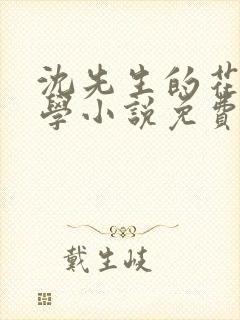 沈先生的花
學小說免費
戴生岐